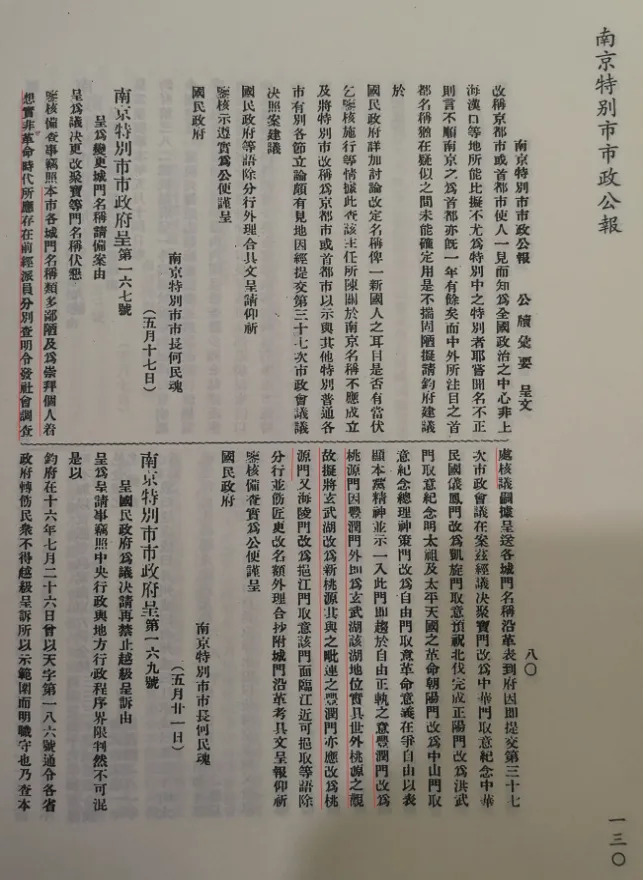 南京特別市市政公報
南京特別市市政公報　公牘彙要　呈文
八〇
改稱京都市或首都市使人一見而知為全國政治之中心非上
海漢口等地所能比擬不尤為特別中之特別者耶嘗聞名不正
則言不順南京之為首都亦既一年有餘矣而中外所注目之首
都名稱猶在疑似之間未能確定用是不揣固陋擬請鈞府建議
於
國民政府詳加討論改定名稱俾一新國人之耳目是否有當伏
乞鑒核施行等情據此查該主任所陳關於南京名稱不應成立
及將特別市改稱為京都市或首都市以示與其他特別普通各
市有別各節立論頗有見地因經提交第三十七次市政會議議
決照案建議
國民政府等語除分行外理合具文呈請仰祈
鑒核示遵實為公便謹呈
國民政府
南京特別市市長何民魂
（五月十七日）
南京特別市市政府呈第一六七號
呈為變更城門名稱請備案由
呈為議決更改聚寶等門名稱伏懇
鑒核備查事竊照本市各城門名稱類多鄙陋及為崇拜個人着
想實非革命時代所應存在前經派員分別查明令發社會調查
處核議嗣據呈送各城門名稱沿革表到府因即提交第三十七
次市政會議在案茲經議決聚寶門改為中華門取意紀念中華
民國儀鳳門改為凱旋門取意預祝北伐完成正陽門改為洪武
門取意紀念明太祖及太平天國之革命朝陽門改為中山門取
意紀念總理神策門改為自由門取意革命意義在爭自由以表
顯本黨精神並示一入此門即趨於自由正執之意豐潤門改為
桃源門因豐潤門外即為玄武湖該湖地位實具世外桃源之觀
故擬將玄武湖改為新桃源北與之毗連之豐潤門亦應改為桃
源門又海陵門改為挹江門取意該門面臨江近可挹取等語除
分行並飭匠更改名額外理合抄附城門沿革考具文呈報仰祈
鑒核備查實為公便謹呈
國民政府
南京特別市市長何民魂
（五月廿一日）
南京特別市市政府呈第一六九號
呈國民政府為議決請再禁止越級呈訴由
呈為呈請事竊照中央行政與地方行政程序界限判然不可混
是以
鈞府在十六年七月二十六日曾以天字第一八六號通令各省
政府轉飭民眾不得越級呈訴所以示範圍而明職守也乃查本
一三〇